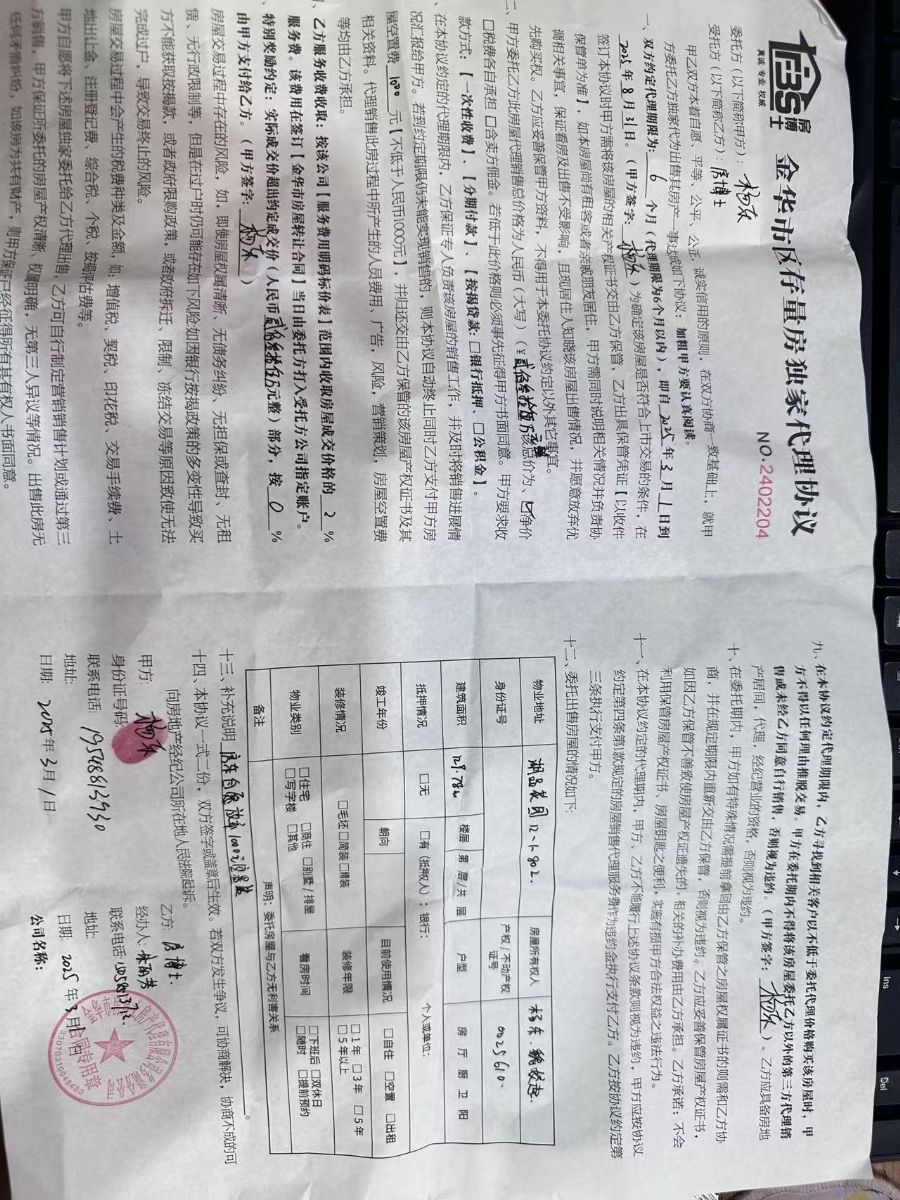 房博士
真诚 专业 权威
金华市区存量房独家代理协议
NO.2402204
委托方（以下简称甲方）：杨东
受托方（以下简称乙方）：房博士
甲乙双方本着自愿、平等、公平、公正、诚实信用的原则，在双方协商一致基础上，就甲
方委托乙方独家代为出售其房产一事达成如下协议：加粗甲方要认真阅读。
一、双方约定代理期限为： 6 个月（代理期限为6个月以内），即自 2025 年 3 月 1 日到
2025 年 8 月 31 日。（甲方签字：杨东）为确定该房屋是否符合上市交易的条件，在
签订本协议时甲方需将该房屋的相关产权证书交由乙方保管，乙方出具保管凭证【以收件
保管单为准】，如本房屋尚有租客或者亲戚朋友居住，甲方需同时说明相关情况并负责协
调相关事宜，保证看房及出售不受影响，且现居住人知晓该房屋出售情况，并愿意放弃优
先购买权。乙方应妥善保管甲方资料，不得用于本委托协议约定以外其它事宜。
二、甲方委托乙方此房屋代理销售总价格为人民币（大写）（¥ 元整）该总价为、☑净价
□税费各自承担 □含卖方佣金。若低于此价格则必须事先征得甲方书面同意。甲方要求收
款方式：【一次性收费】、【分期付款】、【按揭贷款：□银行抵押、□公积金】。
在本协议约定的代理期限内，乙方保证专人负责该房屋的销售工作，并及时将销售进展情
况汇报给甲方。若到约定期限仍未能实现销售的，则本协议自动终止同时乙方支付甲方房
屋空置费 1000 元【不低于人民币1000元】，并归还交由乙方保管的该房屋产权证书及其
相关资料。代理销售此房过程中所产生的人员费用、广告，风险，营销策划，房屋空置费
等均由乙方承担。
、乙方服务收费收取：按该公司【服务费用明码标价表】范围内收取房屋成交价格的 2 %
服务费。该费用在签订【金华市房屋转让合同】当日由委托方打入受托方公司指定账户。
特别奖励约定：实际成交价超出约定成交价（人民币 元整）部分，按 0 %
由甲方支付给乙方。（甲方签字：杨东）
房屋交易过程中存在的风险，如：即使房屋权属清晰、无债务纠纷、无担保或查封、无租
赁、无行政限制等，但是在过户时仍可能存在如下风险如因银行按揭政策的多变性导致买
方不能获取按揭款，或者政府限购政策，或者政府拆迁、限制、冻结交易等原因致使无法
完成过户，导致交易终止的风险。
房屋交易过程中会产生的税费种类及金额，如：增值税、契税、印花税、交易手续费、土
地出让金、注册登记费、综合税、个税、按揭评估费等。
甲方自愿将下述房屋独家委托给乙方代理出售，乙方可自行制定营销销售计划或通过第三
方销售，甲方保证所委托的房屋产权清晰、权属明确，无第三人异议等情况。出售此房无
任何矛盾纠纷，如该房为共有财产，则甲方保证已经征得所有共有权人书面同意。
九、在本协议约定代理期限内，乙方寻找到相关客户以不低于委托代理价格购买该房屋时，甲
方不得以任何理由推脱交易。甲方在委托期内不得将该房屋委托乙方以外的第三方代理销
售或未经乙方同意自行销售，否则视为违约。（甲方签字：杨东）。乙方应具备房地
产居间，代理，经纪营业的资格，否则视为违约。
十、在委托期内，甲方如有特殊情况需提前拿回由乙方保管之房屋权属证书的则需和乙方协
商，并在规定期限内重新交由乙方保管，否则视为违约。乙方应妥善保管房屋产权证书，
如因乙方保管不善致使房屋产权证遗失的，相关的补办费用由乙方承担。乙方承诺：不会
利用保管房屋产权证书，房屋钥匙之便利，实施有损甲方合法权益之违法行为。
十一、在本协议约定的代理期内，甲方、乙方不能履行上述协议条款则视为违约，甲方应按协议
约定第四条第1款规定的房屋销售代理服务费作为违约金执行支付乙方。乙方按协议约定第
三条执行支付甲方。
十二、委托出售房屋的情况如下：
物业地址 湖品花园12-1-802. 房屋所有权人 杨东
身份证号 产权/不动产权证号 0025610.
建筑面积 129.78㎡ 楼层 第 层/共 层 户型 房 厅 厨 卫 阳
抵押情况 □无 □有（抵押权人）：银行： 个人或单位：
竣工年份 朝向 目前使用情况 □自住 □空置 □出租
装修情况 □毛坯 □简装 □精装 装修年限 □1年 □3年 □5年 □5年以上
物业类别 □住宅 □商住 □别墅/排屋 □写字楼 □其他 看房时间 □下班后 □双休日 □随时 □提前预约
备注 声明：委托房屋与乙方无利害关系
十三、补充说明
十四、本协议一式二份，双方签字或盖章后生效。若双方发生争议，可协商解决，协商不成的可
向房地产经纪公司所在地人民法院起诉。
甲方： 杨东
身份证号码：
联系电话：
地址：
日期： 2025 年 3 月 1 日
乙方： 房博士.
经办人：
联系电话：
地址：
日期： 2025 年 3 月 1 日
公司名称：
Ins
Del